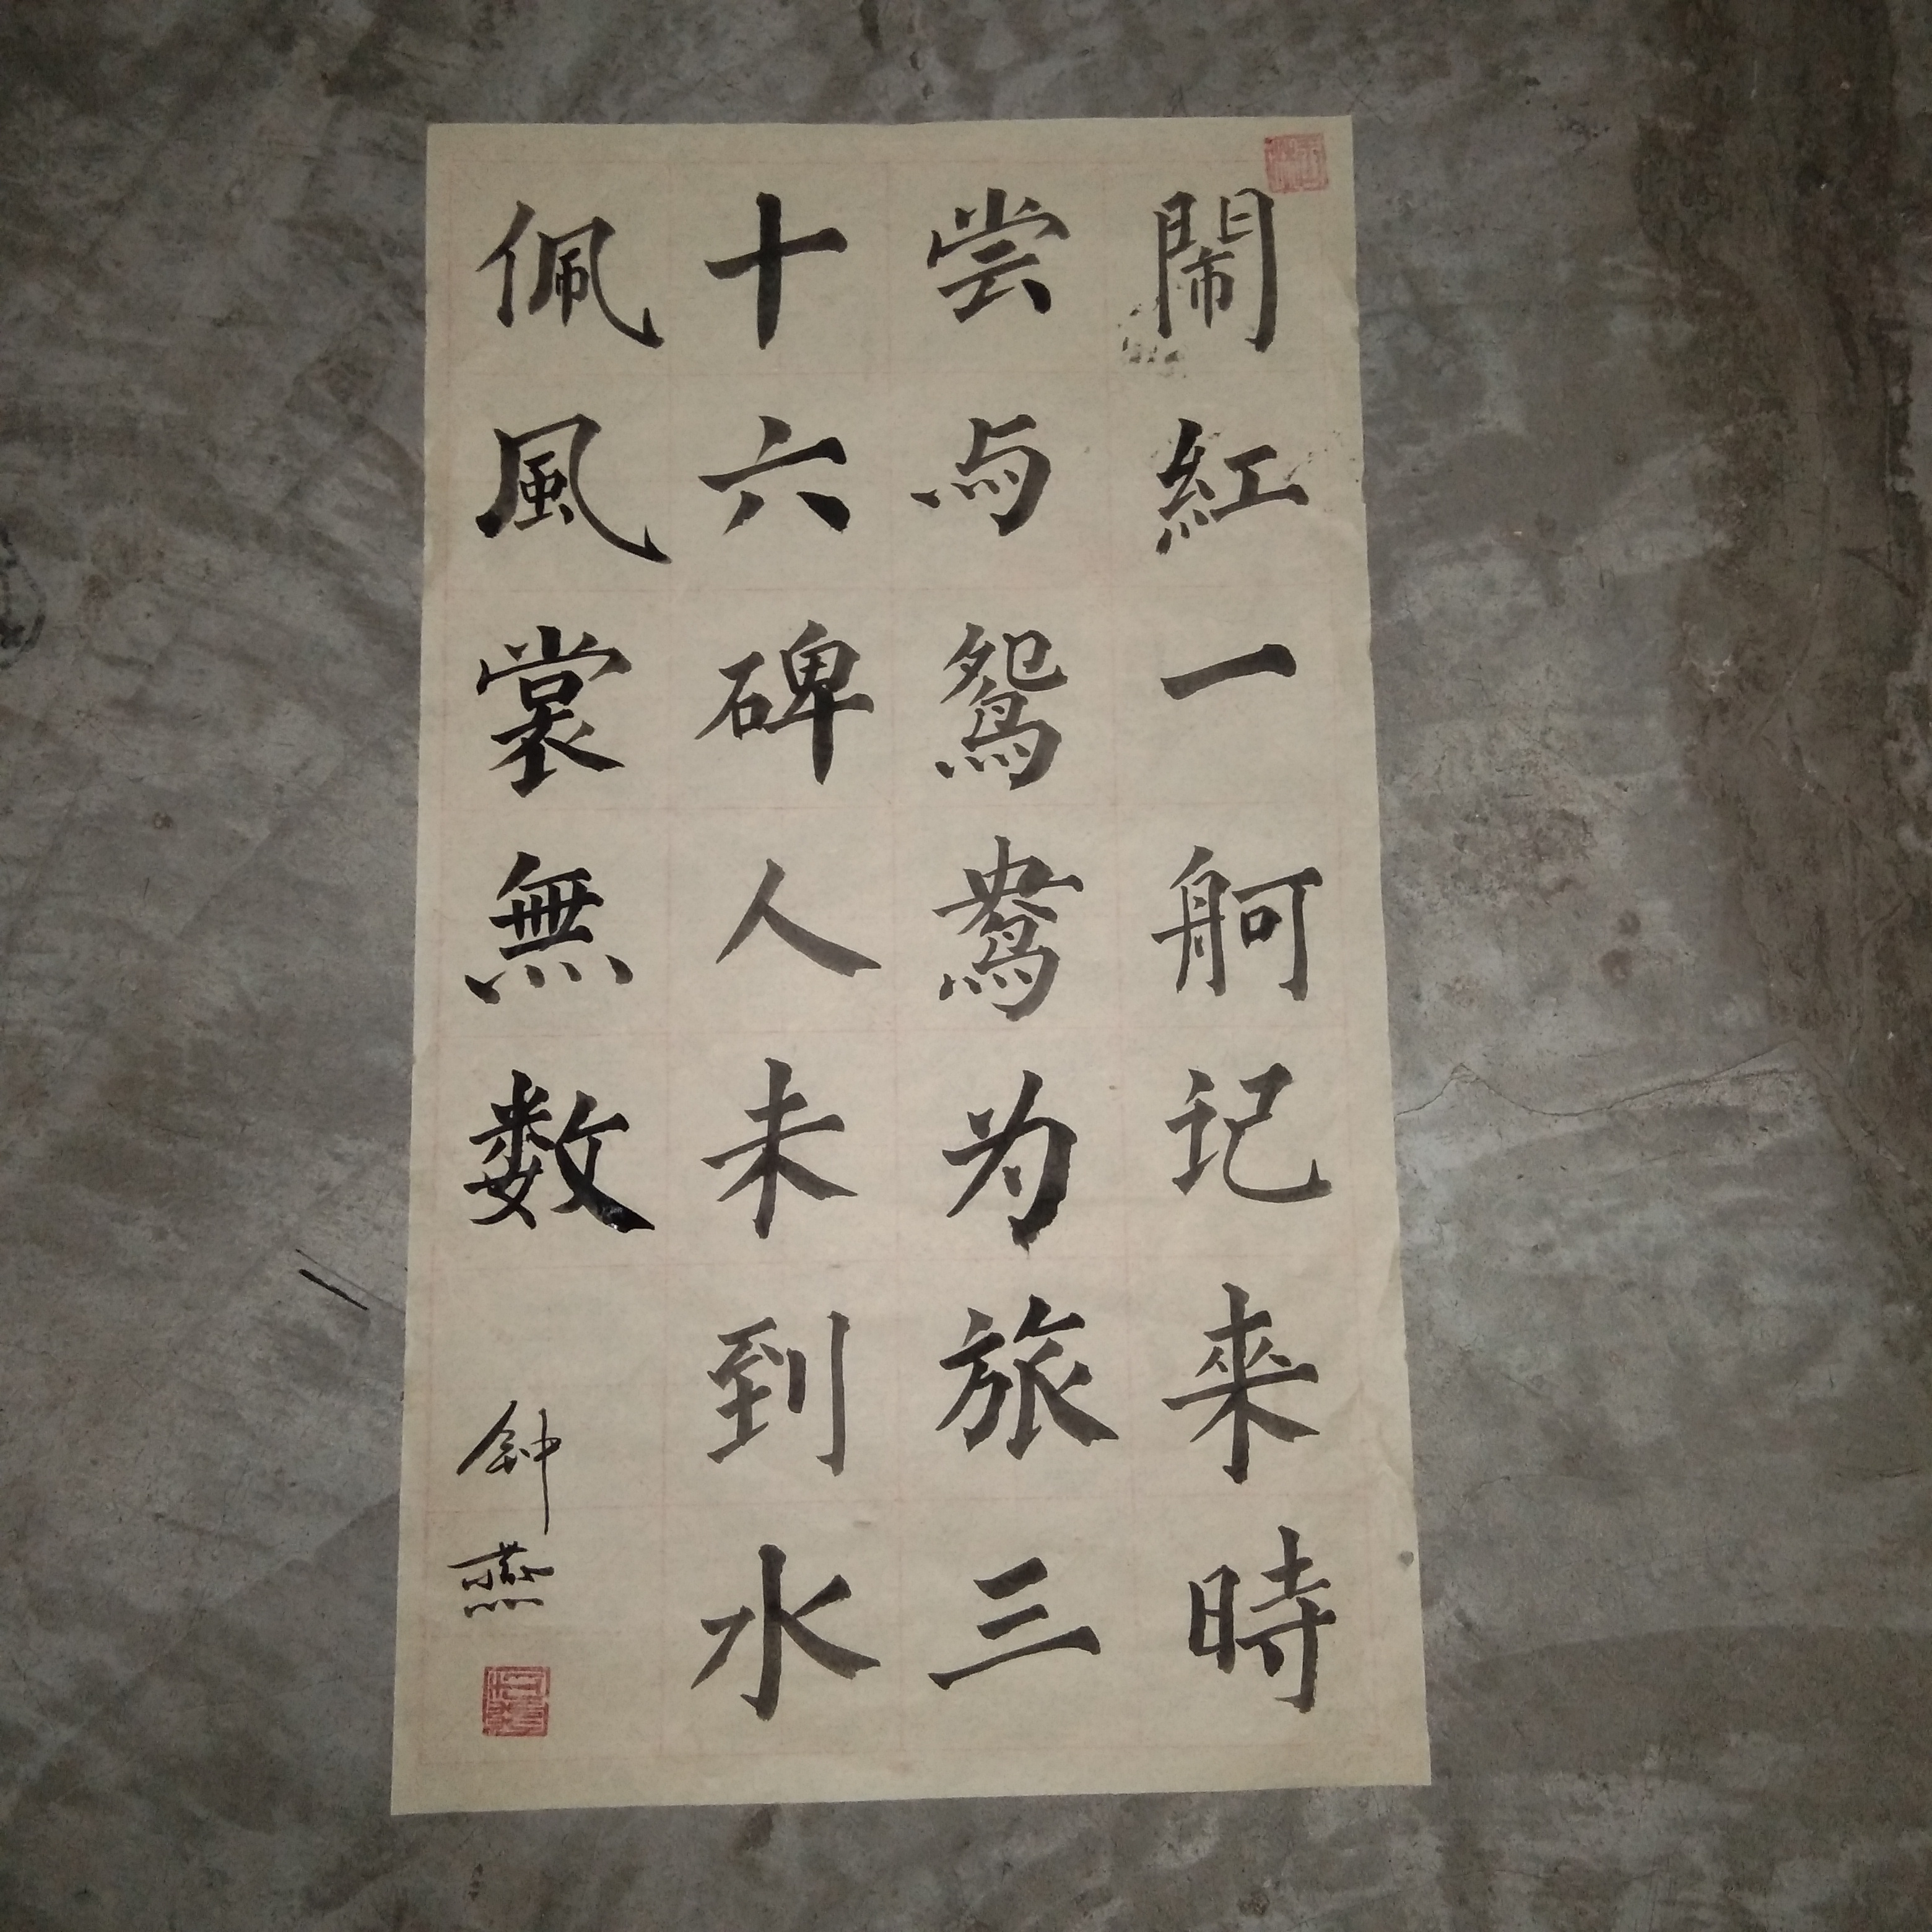 閙紅一舸記来時
尝与鴛鴦为旅三
十六碑人未到水
佩風裳無数
钟燕